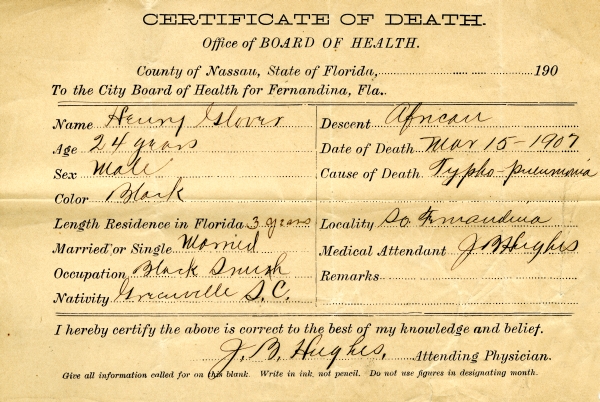 CERTIFICATE OF DEATH.
Office of BOARD OF HEALTH.
County of Nassau, State of Florida, 190
To the City Board of Health for Fernandina, Fla.
Name Henry Glover
Age 24 years
Sex Male
Color Black
Length Residence in Florida 3 years
Married or Single Married
Occupation Black Smith
Nativity Greenville S.C.
Descent African
Date of Death Mar 15-1907
Cause of Death Typho-pneumonia
Locality So Fernandina
Medical Attendant J B Hughes
Remarks
I hereby certify the above is correct to the best of my knowledge and belief.
J. B. Hughes, Attending Physician.
Give all information called for on this blank. Write in ink, not pencil. Do not use figures in designating month.